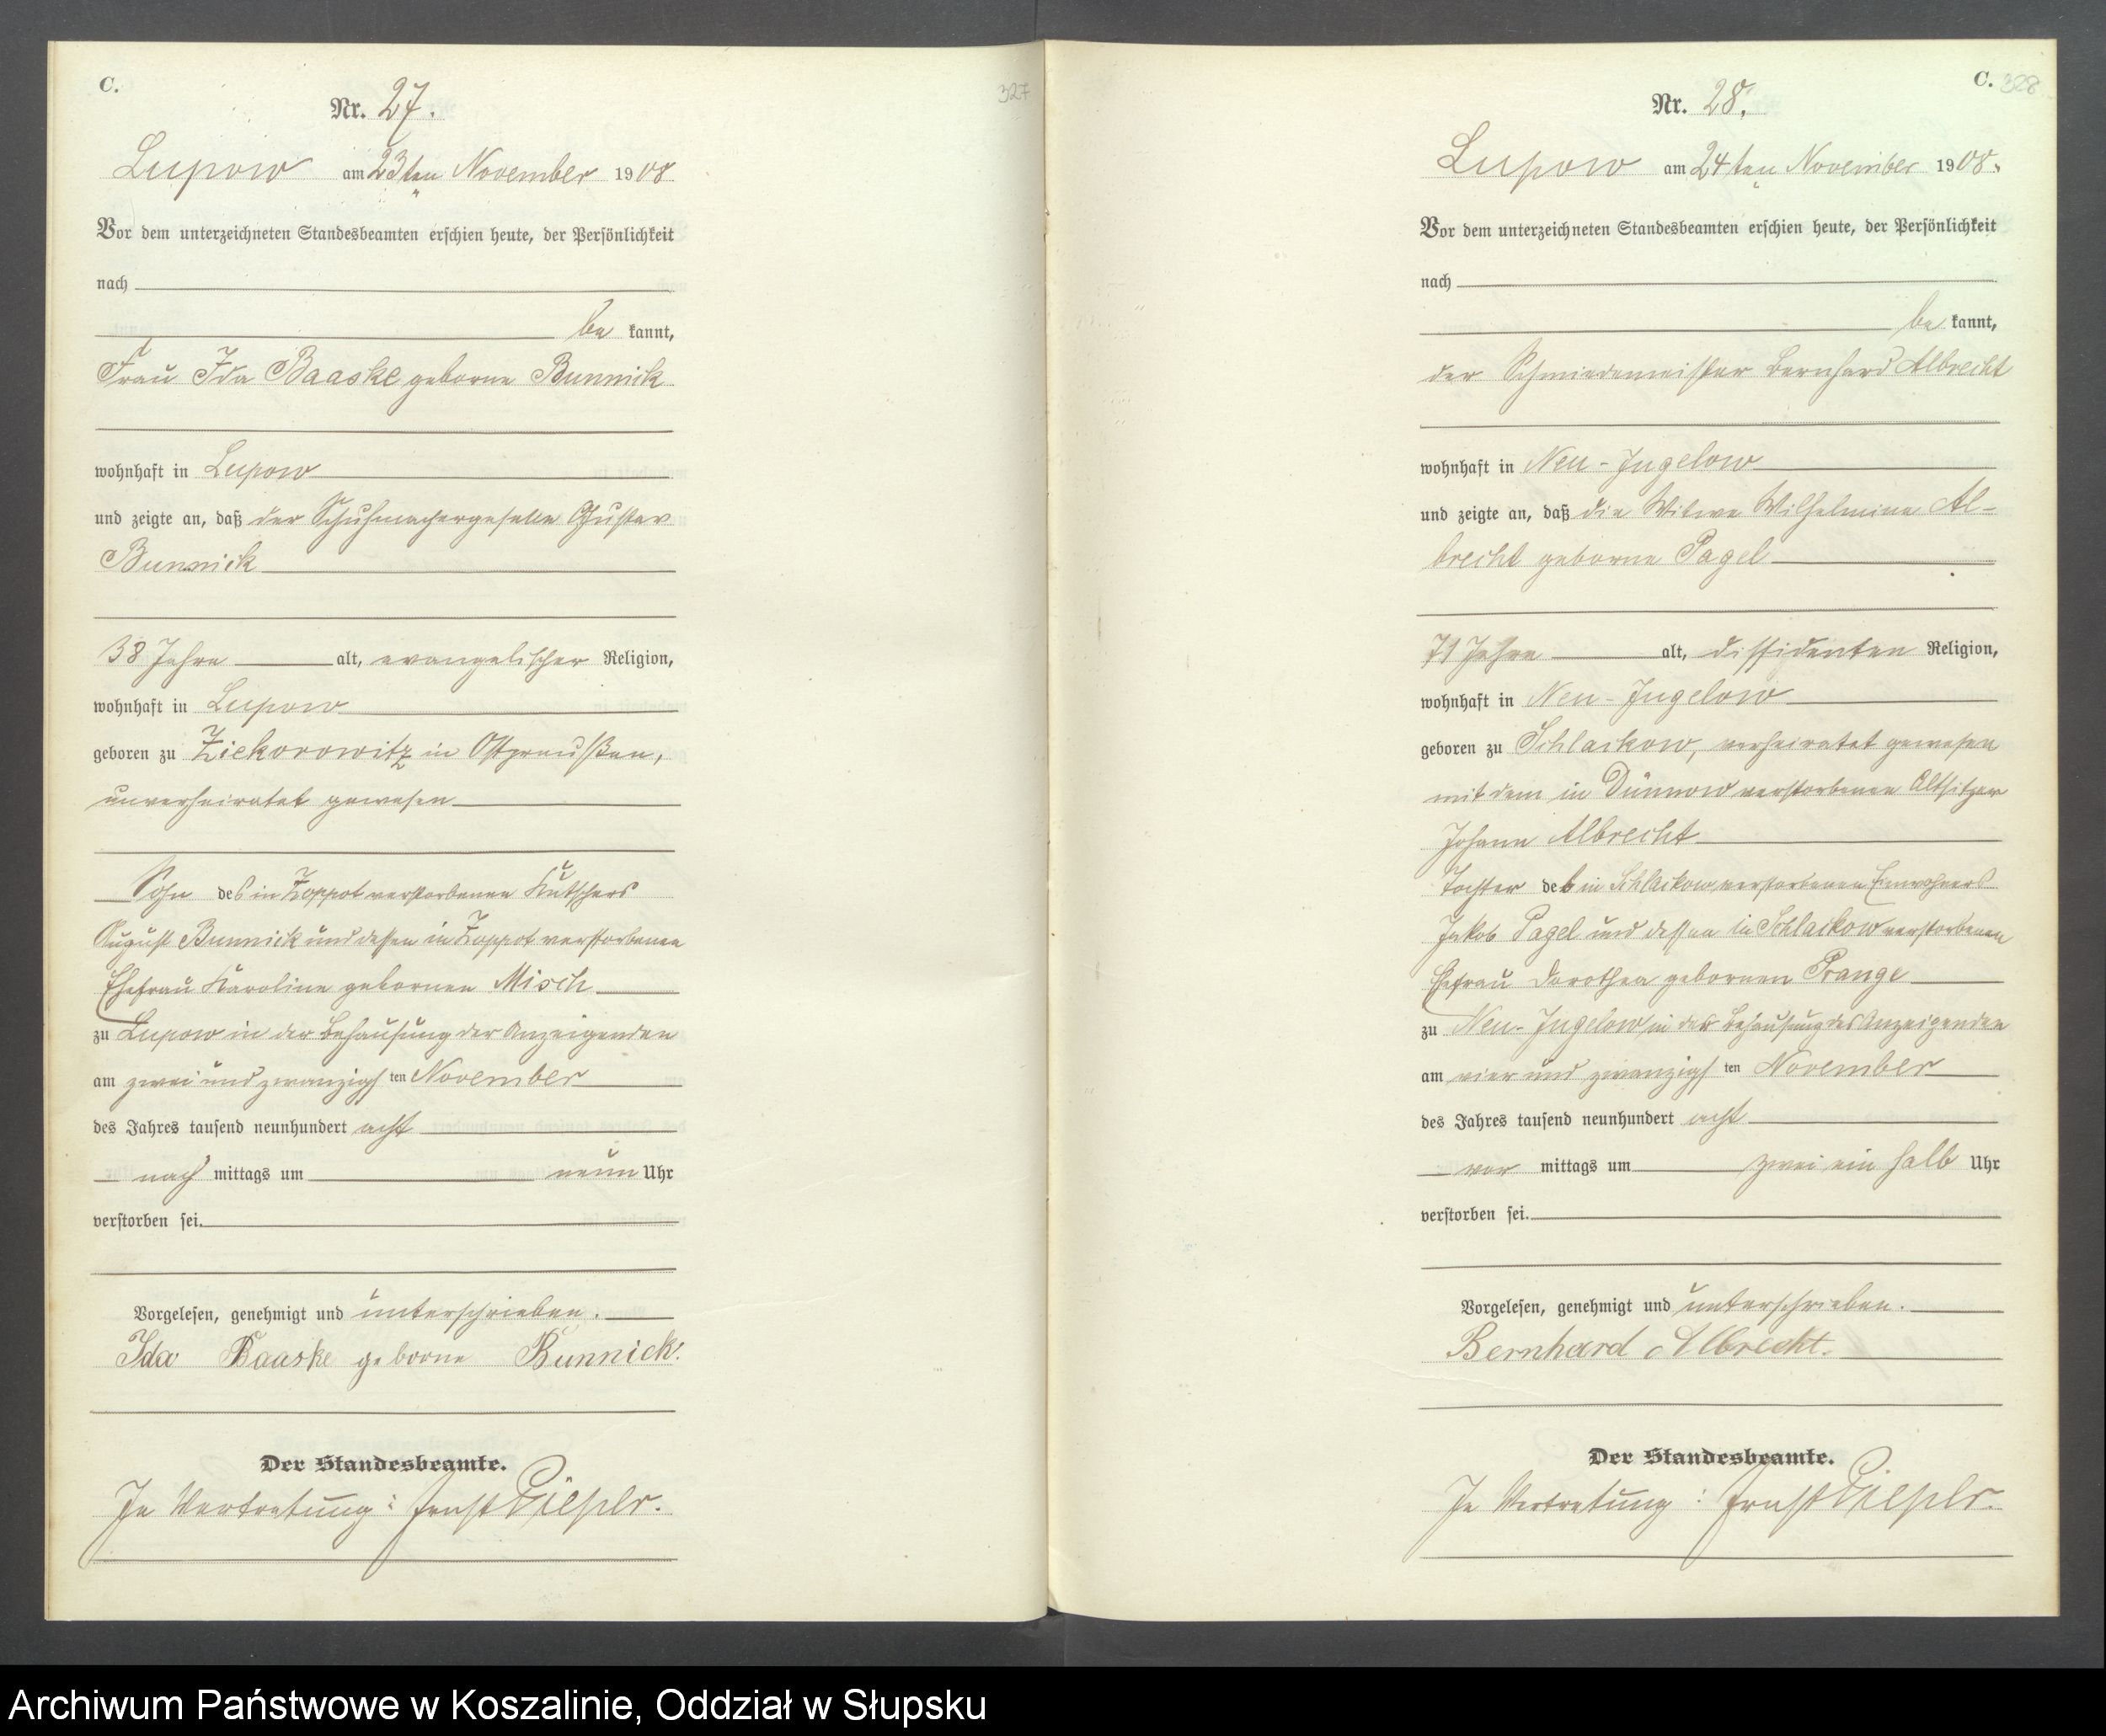 C.
327
Nr. 27.
Lupow am 23ten November 1908
Vor dem unterzeichneten Standesbeamten erschien heute, der Persönlichkeit
nach
be kannt,
Frau Ida Baaske geborne Bunnick
wohnhaft in Lupow
und zeigte an, daß der Schuhmachergeselle Gustav
Bunnick
38 Jahre alt, evangelischer Religion,
wohnhaft in Lupow
geboren zu Ziekorowitz in Ostpreußen,
unverheiratet gewesen
Sohn des in Zoppot verstorbenen Kutschers
August Bunnick und dessen in Zoppot verstorbenen
Ehefrau Karoline gebornen Misch
zu Lupow in der Behausung der Anzeigenden
am zwei und zwanzigsten November
des Jahres tausend neunhundert acht
nach mittags um neun Uhr
verstorben sei.
Vorgelesen, genehmigt und unterschrieben.
Ida Baaske geborne Bunnick.
Der Standesbeamte.
In Vertretung: Ernst
C. 328
Nr. 28.
Lupow am 24ten November 1908.
Vor dem unterzeichneten Standesbeamten erschien heute, der Persönlichkeit
nach
be kannt,
der Schmiedemeister Bernhard Albrecht
wohnhaft in Neu-Jugelow
und zeigte an, daß die Witwe Wilhelmine Al-
brecht geborne Pagel
71 Jahre alt, dissidenten Religion,
wohnhaft in Neu-Jugelow
geboren zu Schlackow, verheiratet gewesen
mit dem in Dünnow verstorbenen Altsitzer
Johann Albrecht
Tochter des in Schlackow verstorbenen Einwohners
Jakob Pagel und dessen in Schlackow verstorbenen
Ehefrau Dorothea gebornen Prange
zu Neu-Jugelow, in der Behausung des Anzeigenden
am vier und zwanzigsten November
des Jahres tausend neunhundert acht
vor mittags um zwei ein halb Uhr
verstorben sei.
Vorgelesen, genehmigt und unterschrieben.
Bernhard Albrecht.
Der Standesbeamte.
In Vertretung: Ernst
Archiwum Państwowe w Koszalinie, Oddział w Słupsku